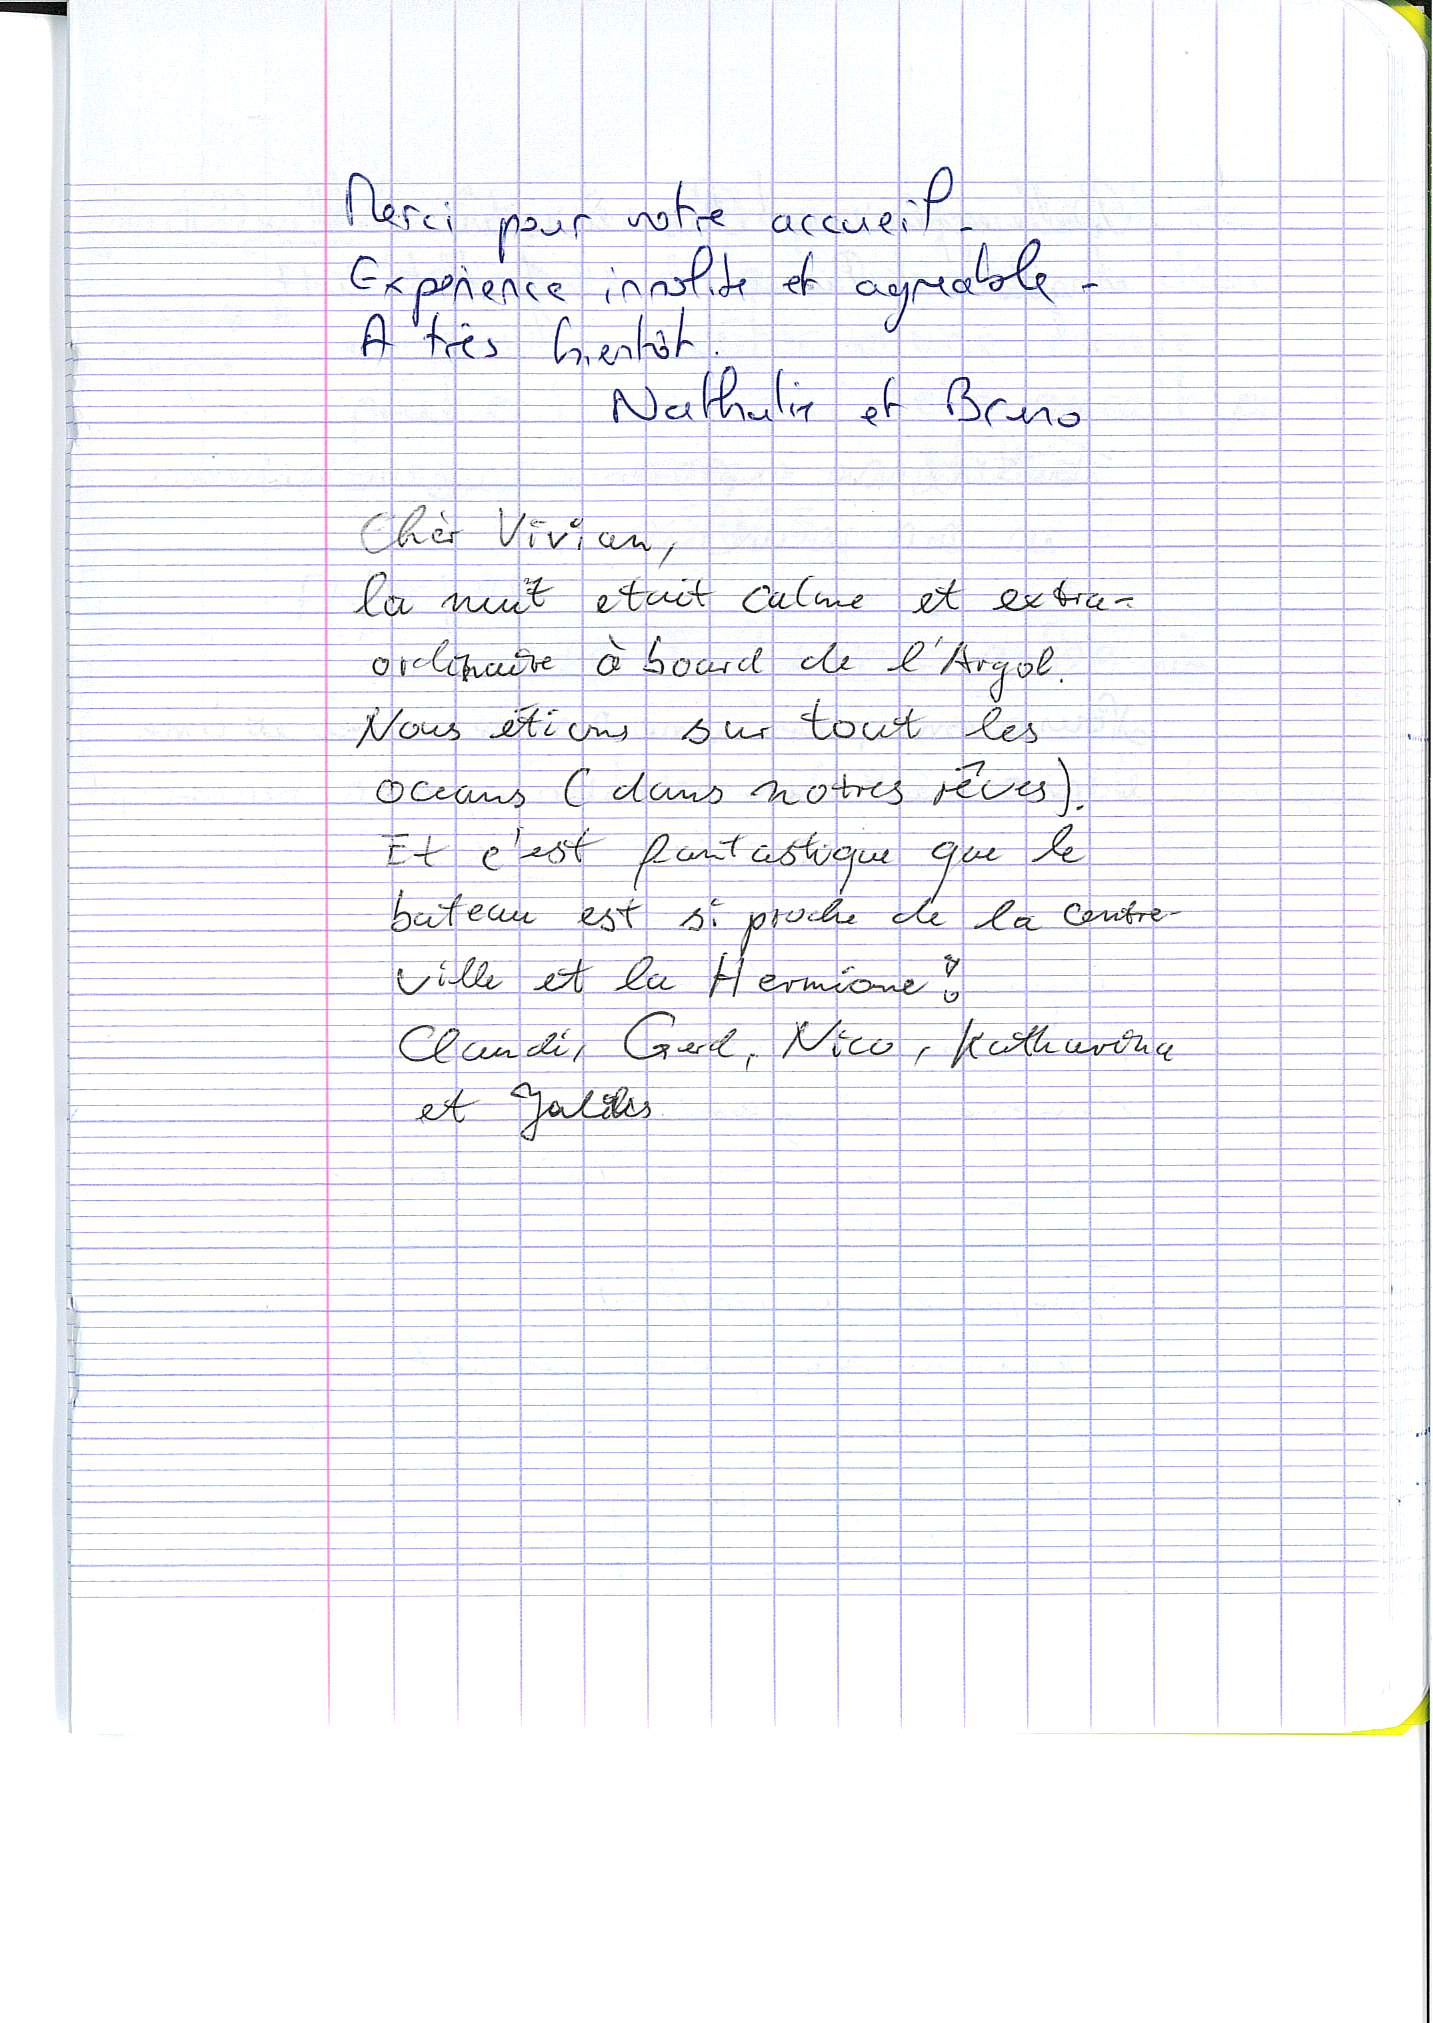 Merci pour votre accueil -
Expérience insolite et agréable -
A très bientôt.
Nathalie et Bruno
Chèr Vivian,
la nuit etait calme et extra-
ordinaire à board de l'Argol.
Nous étions sur tout les
oceans (dans notres rêves).
Et c'est fantastique que le
bateau est si proche de la centre-
ville et la Hermione!
Claudi, Gerd, Nico, Katharina
et